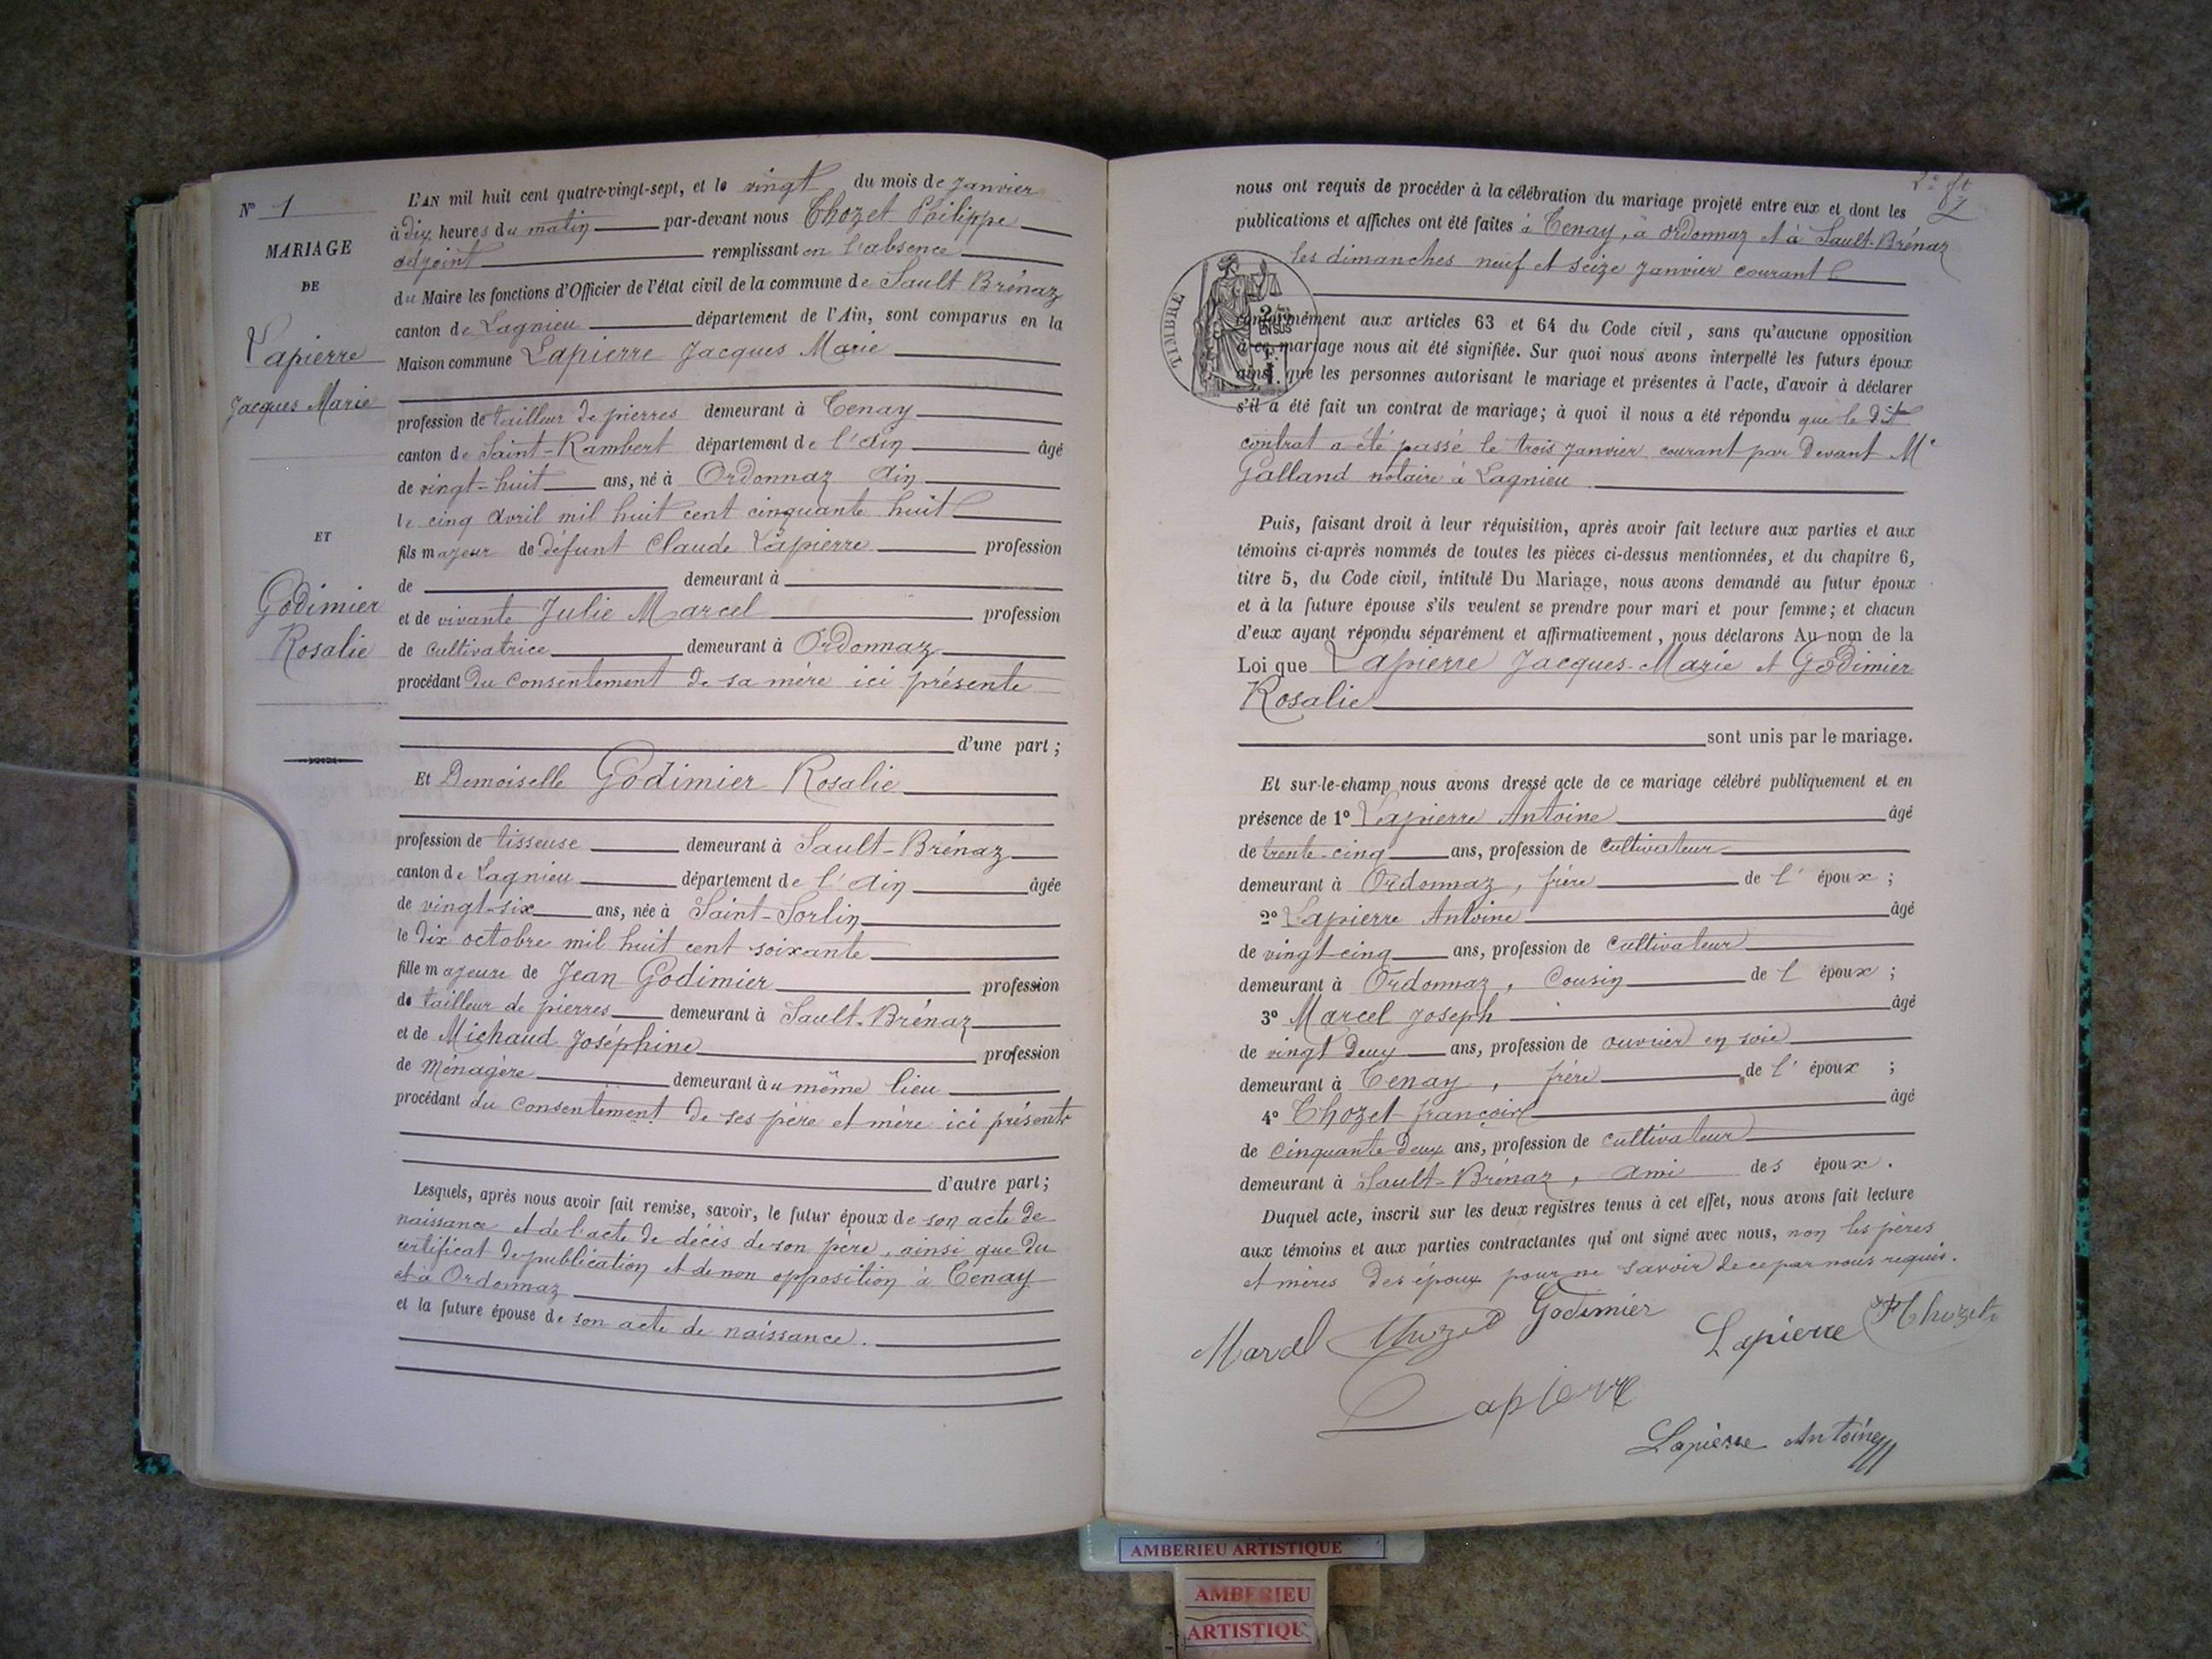 N° 1
MARIAGE
DE
Lapierre
Jacques Marie
ET
Godimier
Rosalie
L'AN mil huit cent quatre-vingt-sept, et le vingt du mois de janvier
à dix heures du matin par-devant nous Thozet Philippe
adjoint remplissant en l'absence
du Maire les fonctions d'Officier de l'état civil de la commune de Sault Brénaz
canton de Lagnieu département de l'Ain, sont comparus en la
Maison commune Lapierre Jacques Marie
profession de tailleur de pierres demeurant à Tenay
canton de Saint-Rambert département de l'Ain âgé
de vingt-huit ans, né à Ordonnaz Ain
le cinq avril mil huit cent cinquante huit
fils majeur de défunt Claude Lapierre profession
de demeurant à
et de vivante Julie Marcel profession
de cultivatrice demeurant à Ordonnaz
procédant du consentement de sa mère ici présente
d'une part ;
Et Demoiselle Godimier Rosalie
profession de tisseuse demeurant à Sault-Brénaz
canton de Lagnieu département de l'Ain âgée
de vingt-six ans, née à Saint-Sorlin
le dix octobre mil huit cent soixante
fille majeure de Jean Godimier profession
de tailleur de pierres demeurant à Sault-Brénaz
et de Michaud Joséphine profession
de Ménagère demeurant au même lieu
procédant du consentement de ses père et mère ici présents
d'autre part ;
Lesquels, après nous avoir fait remise, savoir, le futur époux de son acte de
naissance et de l'acte de décès de son père, ainsi que du
certificat de publication et de non opposition à Tenay
et à Ordonnaz
et la future épouse de son acte de naissance.
nous ont requis de procéder à la célébration du mariage projeté entre eux et dont les
publications et affiches ont été faites à Tenay, à Ordonnaz et à Sault-Brénaz
les dimanches neuf et seize janvier courant
TIMBRE
conformément aux articles 63 et 64 du Code civil, sans qu'aucune opposition
à ce mariage nous ait été signifiée. Sur quoi nous avons interpellé les futurs époux
ainsi que les personnes autorisant le mariage et présentes à l'acte, d'avoir à déclarer
s'il a été fait un contrat de mariage; à quoi il nous a été répondu que le dit
contrat a été passé le trois janvier courant par devant Me
Galland notaire à Lagnieu
Puis, faisant droit à leur réquisition, après avoir fait lecture aux parties et aux
témoins ci-après nommés de toutes les pièces ci-dessus mentionnées, et du chapitre 6,
titre 5, du Code civil, intitulé Du Mariage, nous avons demandé au futur époux
et à la future épouse s'ils veulent se prendre pour mari et pour femme; et chacun
d'eux ayant répondu séparément et affirmativement, nous déclarons Au nom de la
Loi que Lapierre Jacques-Marie et Godimier
Rosalie
sont unis par le mariage.
Et sur-le-champ nous avons dressé acte de ce mariage célébré publiquement et en
présence de 1° Lapierre Antoine âgé
de trente-cinq ans, profession de cultivateur
demeurant à Ordonnaz, frère de l'époux ;
2° Lapierre Antoine âgé
de vingt-cinq ans, profession de cultivateur
demeurant à Ordonnaz, Cousin de l'époux ;
3° Marcel Joseph âgé
de vingt deux ans, profession de ouvrier en soie
demeurant à Tenay, frère de l'époux ;
4° Thozet françois âgé
de cinquante deux ans, profession de cultivateur
demeurant à Sault-Brénaz, ami des époux.
Duquel acte, inscrit sur les deux registres tenus à cet effet, nous avons fait lecture
aux témoins et aux parties contractantes qui ont signé avec nous, non les pères
et mères des époux pour ne savoir de ce par nous requis.
Marcel Thozet Godimier Lapierre Thozet
Lapierre
Lapierre Antoine
AMBERIEU ARTISTIQUE
AMBERIEU
ARTISTIQUE